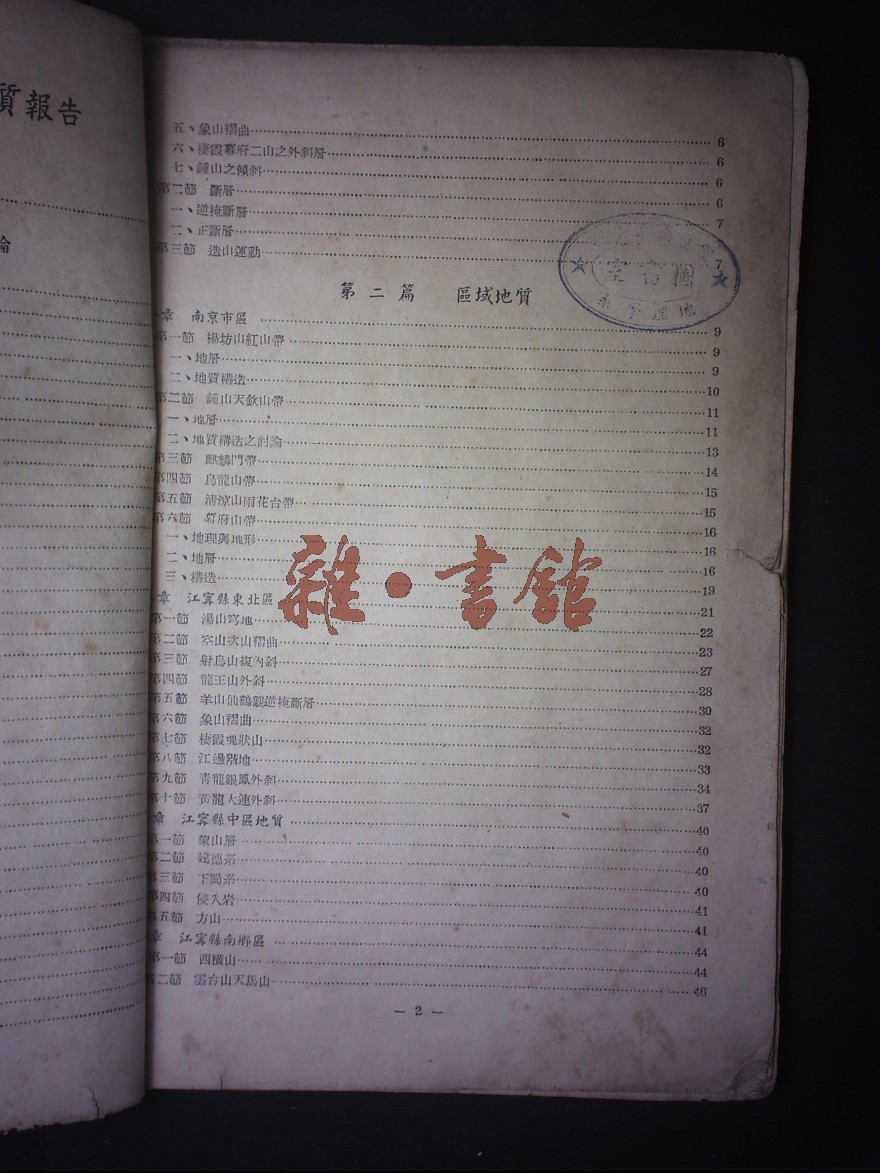 質報告
論
五、象山褶曲 6
六、棲霞幕府二山之外斜層 6
七、鐘山之傾斜 6
第二節 斷層 6
一、逆掩斷層 7
二、正斷層
第三節 造山運動 7
圖書室
地理學系
第二篇 區域地質
章 南京市區 9
第一節 楊坊山紅山帶 9
一、地層 9
二、地質構造 10
第二節 鐘山天欽山帶 11
一、地層 11
二、地質構造之討論 13
第三節 麒麟門帶 14
第四節 烏龍山帶 15
第五節 清涼山雨花台帶 15
第六節 幕府山帶 16
一、地理與地形 16
二、地層 16
三、構造 19
章 江寧縣東北區 21
第一節 湯山穹地 22
第二節 空山次山褶曲 23
第三節 射烏山複內斜 27
第四節 龍王山外斜 28
第五節 羊山仙鶴觀逆掩斷層 30
第六節 象山褶曲 32
第七節 棲霞塊狀山 32
第八節 江邊階地 33
第九節 青龍銀鳳外斜 34
第十節 黃龍大連外斜 37
章 江寧縣中區地質 40
第一節 象山層 40
第二節 建德系 40
第三節 下蜀系 40
第四節 侵入岩 41
第五節 方山 41
章 江寧縣南鄉區 44
第一節 四橫山 44
第二節 雲台山天馬山 46
— 2 —
雜·書館